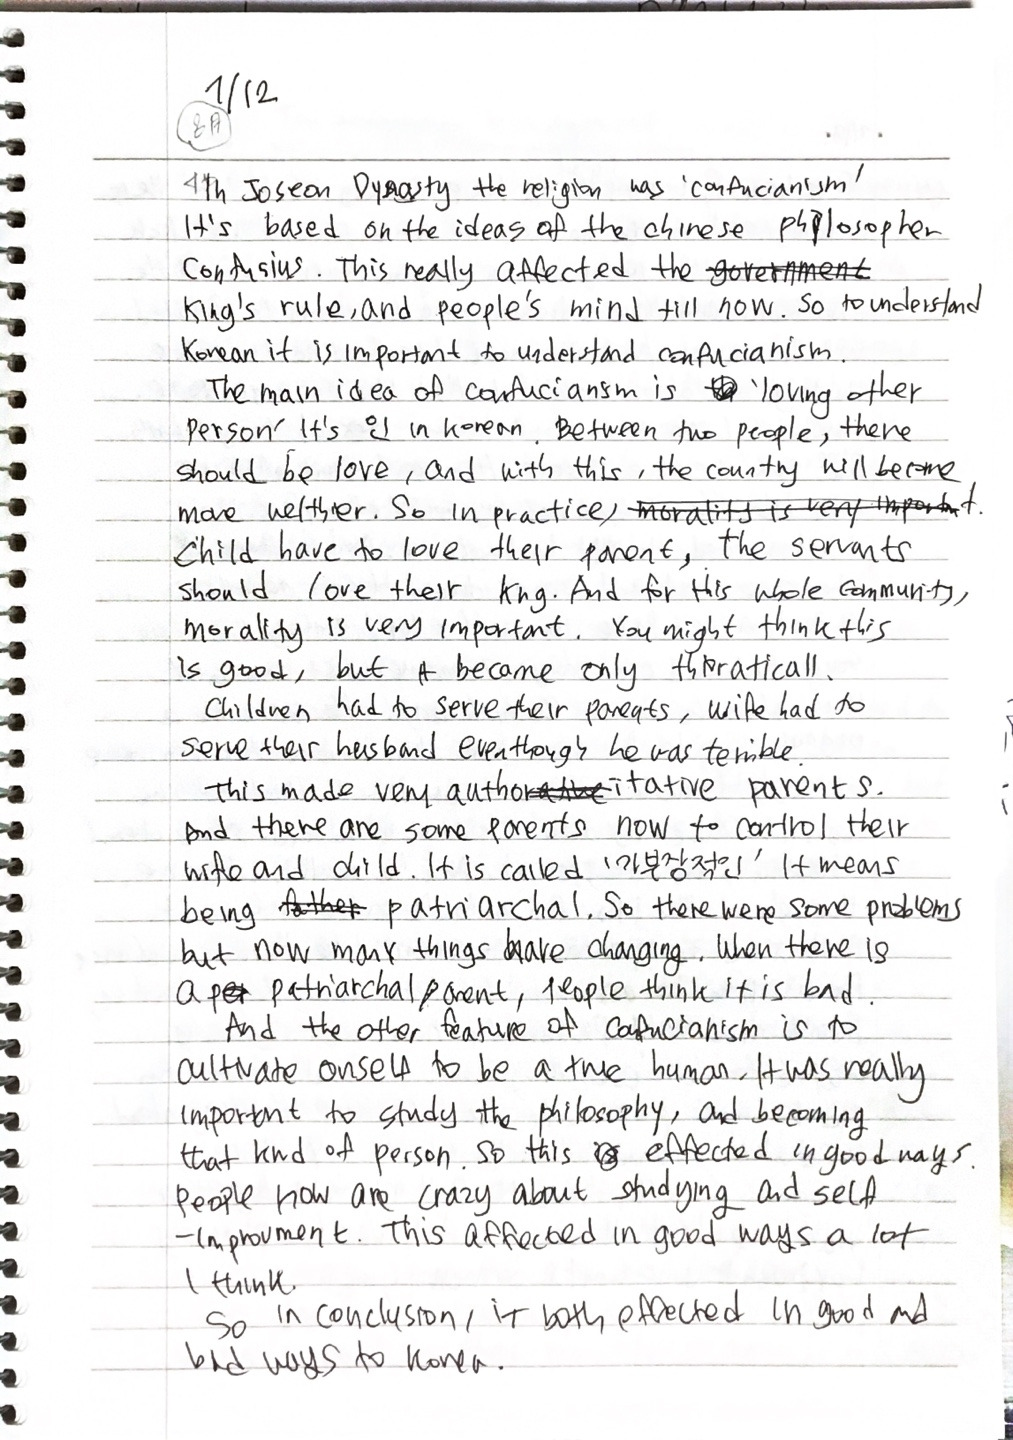 1/12
In Joseon Dynasty the religion was 'confucianism'
It's based on the ideas of the chinese philosopher
Confusius. This really affected the government
King's rule, and people's mind till now. So to understand
Korean it is important to understand confucianism.
The main idea of confuciansm is 'loving other
person' It's 인 in korean. Between two people, there
should be love, and with this, the country will become
more welthier. So in practice, morality is very important.
Child have to love their parent, the servants
should love their king. And for this whole community,
morality is very important. You might think this
is good, but it became only thoraticall.
Children had to serve their parents, wife had to
serve their husband eventhough he was terrible.
This made very authoritative parents.
And there are some parents now to control their
wife and child. It is called '가부장적인' It means
being father patriarchal. So there were some problems
but now many things are changing. When there is
a patriarchal parent, people think it is bad.
And the other feature of confucianism is to
cultivate onself to be a true human. It was really
important to study the philosophy, and becoming
that kind of person. So this effected in good ways.
People now are crazy about studying and self
-improvment. This affected in good ways a lot
I think.
So in conclusion, it both effected in good and
bad ways to Korea.